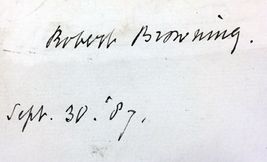 Robert Browning.
Sept. 30. '87.